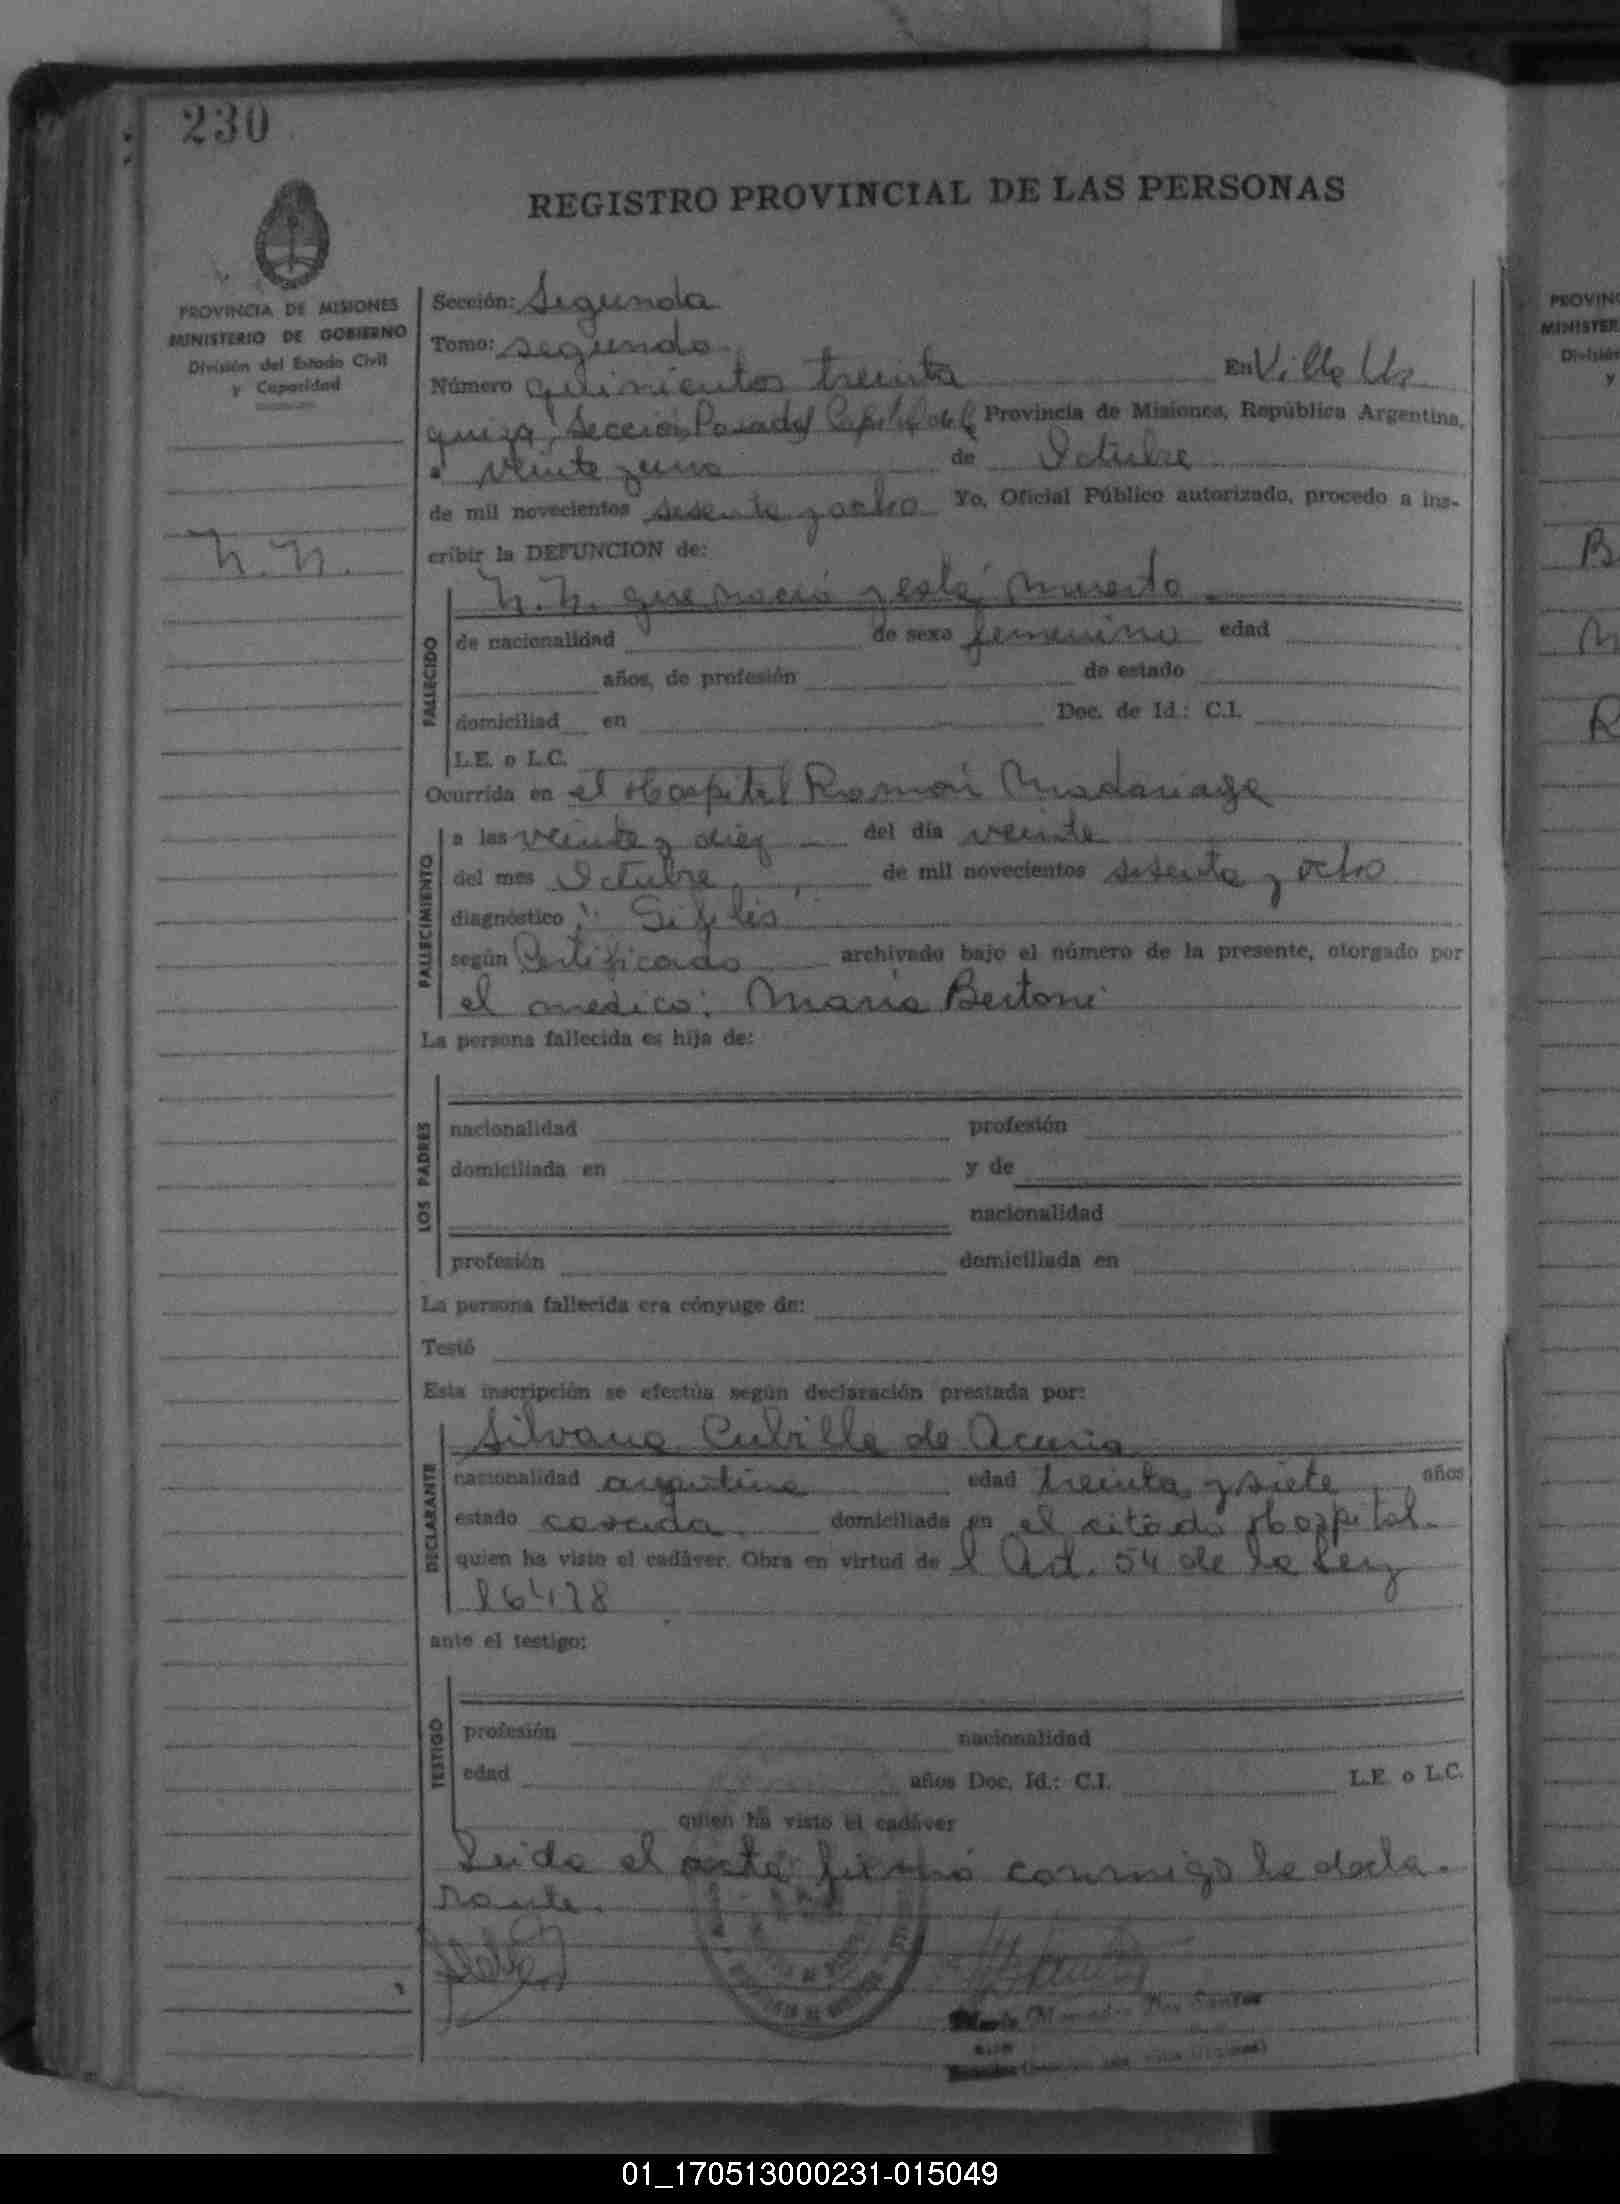 230
REGISTRO PROVINCIAL DE LAS PERSONAS
PROVINCIA DE MISIONES
MINISTERIO DE GOBIERNO
División del Estado Civil
y Capacidad
N.N.
Sección: Segunda
Tomo: segundo
Número quinientos treinta En Villa Ur
quiza, Sección Posadas Capital de la Provincia de Misiones, República Argentina,
a veinte y uno de Octubre
de mil novecientos sesenta y ocho Yo, Oficial Público autorizado, procedo a ins-
cribir la DEFUNCION de:
N.N. que nació y está muerta
FALLECIDO
de nacionalidad de sexo femenino edad
años, de profesión de estado
domiciliad en Doc. de Id.: C.I.
L.E. o L.C.
Ocurrida en el Hospital Ramón Madariaga
FALLECIMIENTO
a las veinte y diez del día veinte
del mes Octubre de mil novecientos sesenta y ocho
diagnóstico "Sifilis"
según Certificado archivado bajo el número de la presente, otorgado por
el medico: Maria Bertoni
La persona fallecida es hija de:
LOS PADRES
nacionalidad profesión
domiciliada en y de
nacionalidad
profesión domiciliada en
La persona fallecida era cónyuge de:
Testó
Esta inscripción se efectúa según declaración prestada por:
DECLARANTE
Silvana Cubilla de Acuña
nacionalidad argentina edad treinta y siete años
estado casada domiciliada en el citado Hospital.
quien ha visto el cadáver. Obra en virtud de l Ad. 54 de la Ley
ante el testigo:
TESTIGO
profesión nacionalidad
edad años Doc. Id.: C.I. L.E. o L.C.
quien ha visto el cadáver
Leida el acta firmó conmigo la decla-
rante.
01_170513000231-015049
PROVIN
MINISTER
División
y
B
N
R